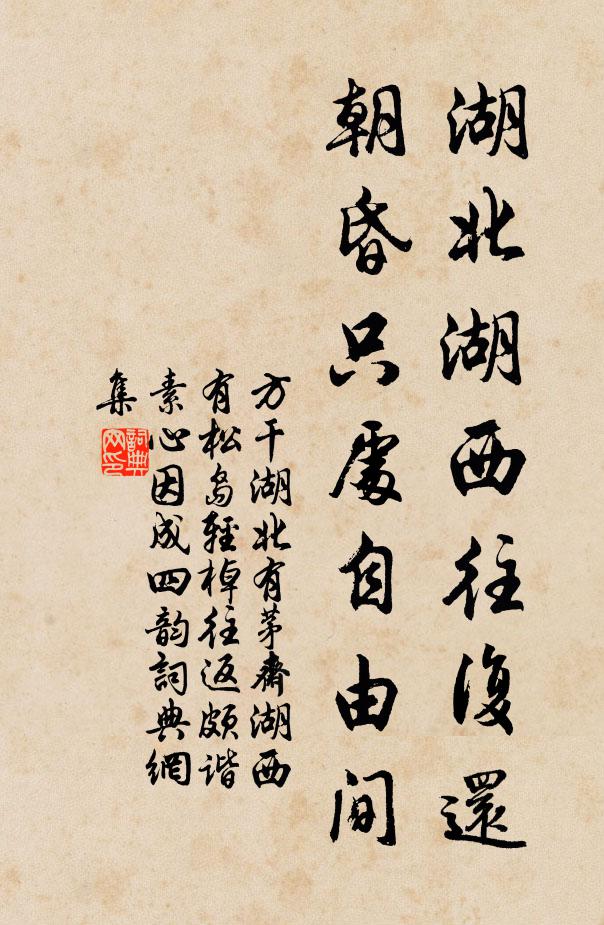 湖北湖西往復還
朝昏只處自由間
方干湖北有茅齋湖西
有松島輕棹往返頗谐
素心因成四韵詞典網
集
詞典
网印